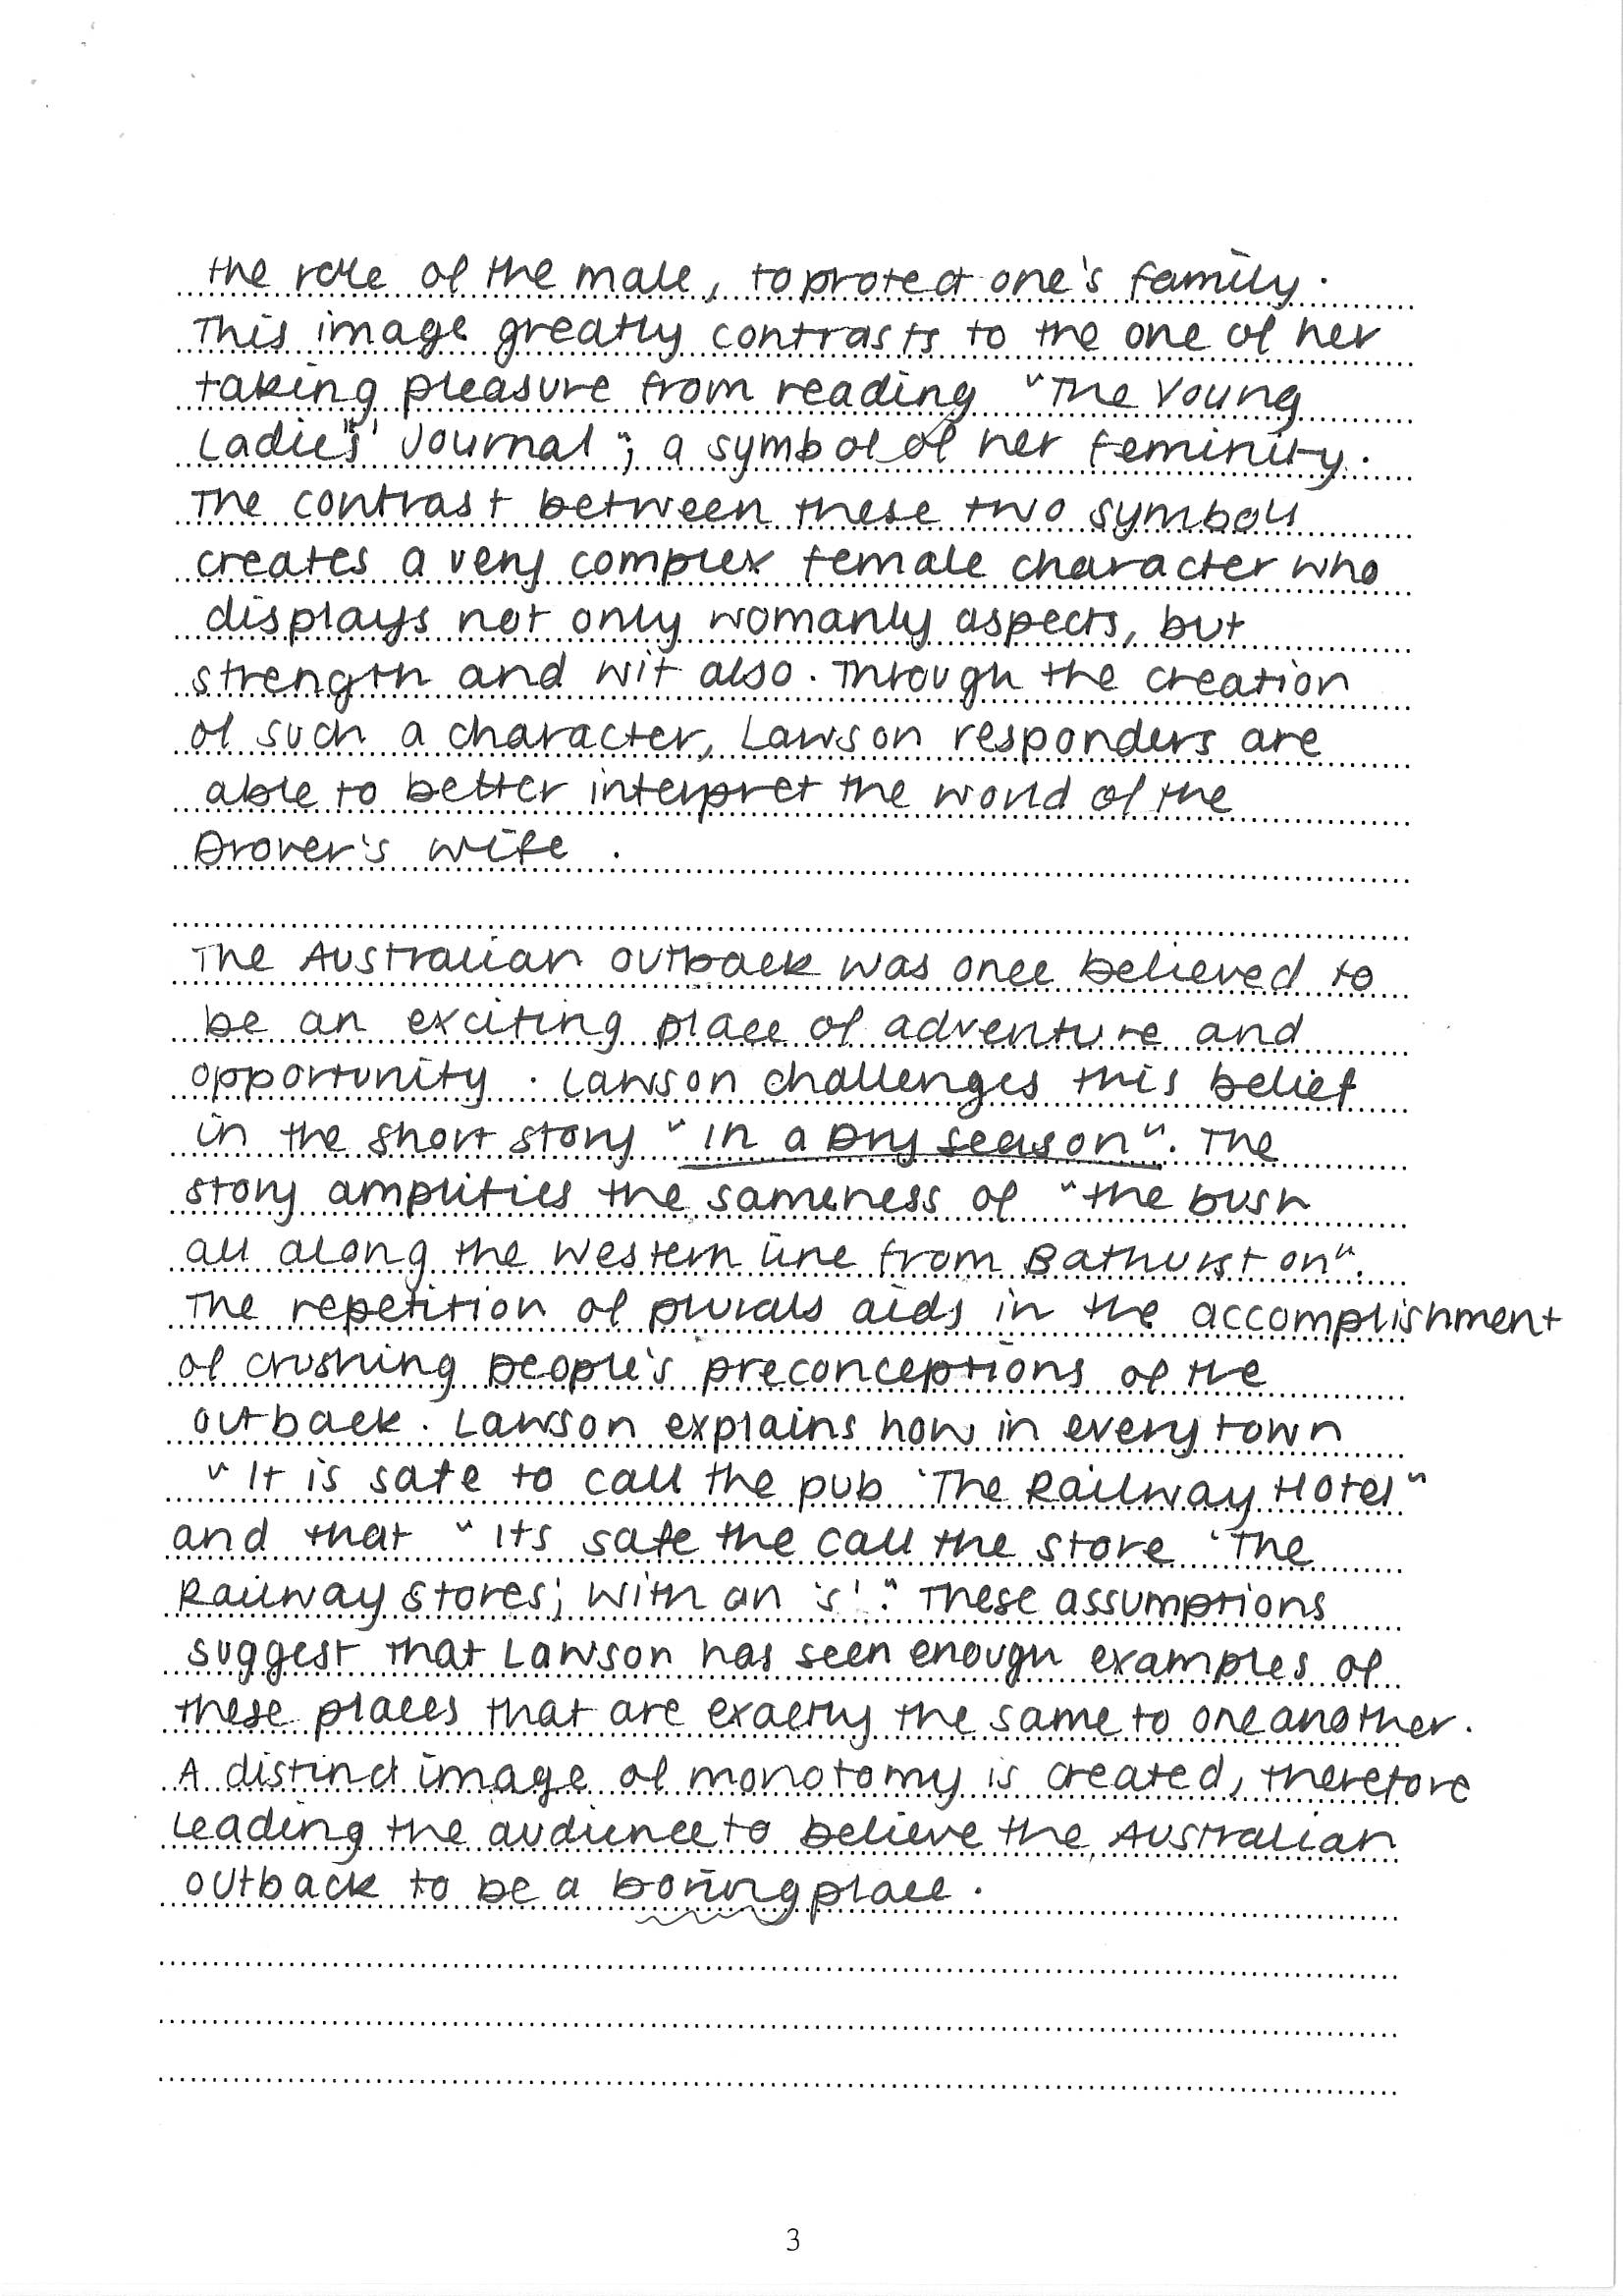 the role of the male, to protect one's family.
This image greatly contrasts to the one of her
taking pleasure from reading "The Young
Ladies' Journal"; a symbol of her feminity.
The contrast between these two symbols
creates a very complex female character who
displays not only womanly aspects, but
strength and wit also. Through the creation
of such a character, Lawson responders are
able to better interpret the world of the
Drover's wife.
The Australian outback was once believed to
be an exciting place of adventure and
opportunity. Lawson challenges this belief
in the short story "In a Dry Season". The
story amplifies the sameness of "the bush
all along the Western line from Bathurst on".
The repetition of plurals aids in the accomplishment
of crushing people's preconceptions of the
outback. Lawson explains how in every town
"It is safe to call the pub 'The Railway Hotel"
and that "Its safe the call the store 'The
Railway Stores', with an 's'." These assumptions
suggest that Lawson has seen enough examples of
these places that are exactly the same to one another.
A distinct image of monotomy is created, therefore
leading the audience to believe the Australian
outback to be a boring place.
3